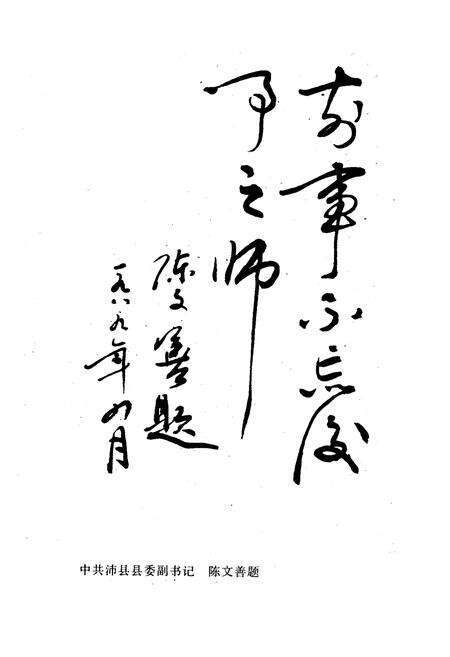 前事不忘后
事之师
陈文善题
一九八九年四月
中共沛县县委副书记 陈文善题